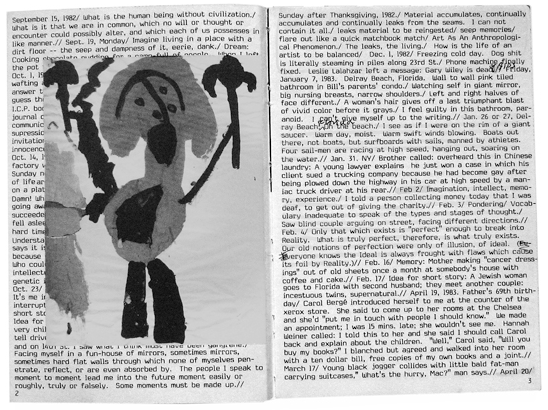 September 15, 1982/ What is the human being without civilization./
What is it that we are in common, which no will or thought or
encounter could possibly alter, and which each of us possesses in
like manner.// Sept. 19, Monday/ Imagine living in a place with a
dirt floor -- the seep and dampness of it, eerie, dank./ Dream:
Cooking chocolate pudding for a
the pot
Oct. 1, 19
wafting
answer t
guess th
I.C.P. bo
journal
communi
supressio
invitation
innocenc
Oct. 14, 1
factory
Sunday n
of life
on a pla
Damn! W
going aw
succeede
fell asle
hard tim
Understa
says it i
because
Who coul
intellect
genetic
Oct. 23/
It's me i
interrupt
short sto
Idea for
very chil
tell driv
and on
Facing myself in a fun-house of mirrors, sometimes mirrors,
sometimes hard flat walls through which none of myselves pen-
etrate, reflect, or are even absorbed by. The people I speak to
moment to moment lead me into the future moment easily or
roughly, truly or falsely. Some moments must be made up.//
2
Sunday after Thanksgiving, 1982./ Material accumulates, continually
accumulates and continually leaks from the seams. I can not
contain it all./ leaks material to be reingested/ seep memories/
flare out like a quick matchbook match/ Art As An Anthropologi-
cal Phenomenon./ The leaks, the living./ How is the life of an
artist to be balanced/ Dec. 1, 1982/ Freezing cold day. Dog shit
is literally steaming in piles along 23rd St./ Phone machine finally
fixed. Leslie calls/er left a message: Gary Wiley is dead/ Friday,
January 7, 1983. Delray Beach, Florida. Wall to wall pink tiled
bathroom in Bill's parents' condo./ Watching self in giant mirror,
big nursing breasts, narrow shoulders./ Left and right halves of
face different./ A woman's hair gives off a last triumphant blast
of vivid color before it grays./ I feel guilty in this bathroom, par-
anoid. I can't give myself up to the writing.// Jan. 26 or 27, Del-
ray Beach, on the beach./ I see as if I were on the rim of a giant
saucer. Warm day, moist. Warm swift winds blowing. Boats out
there, not boats, but surfboards with sails, manned by athletes.
Four sail-men are racing at high speed, hanging out, soaring on
the water.// Jan. 31. NY/ Brother called: overheard this in Chinese
laundry: A young lawyer explains he just won a case in which his
client sued a trucking company because he had become gay after
being plowed down the highway in his car at high speed by a man-
iac truck driver at his rear.// Feb 2/ Imagination, intellect, memo-
ry, experience./ I told a person collecting money today that I was
deaf, to get out of giving the charity.// Feb. 3/ Pondering/ Vocab-
ulary inadequate to speak of the types and stages of thought./
Saw blind couple arguing on street, facing different directions.//
Feb. 4/ Only that which exists is "perfect" enough to break into
Reality. What is truly perfect, therefore, is what truly exists.
Our old notions of perfection were only of illusion, of ideal.
Everyone knows the Ideal is always fraught with flaws which cause
its foil by Reality.// Feb. 16/ Memory: Mother making "cancer dress-
ings" out of old sheets once a month at somebody's house with
coffee and cake.// Feb. 17/ Idea for short story: A Jewish woman
goes to Florida with second husband; they meet another couple:
incestuous twins, supernatural.// April 19, 1983. Father's 69th birth-
day/ Carol Bergé introduced herself to me at the counter of the
xerox store. She said to come up to her rooms at the Chelsea
and she'd "put me in touch with people I should know." We made
an appointment; I was 15 mins. late; she wouldn't see me. Hannah
Weiner called: I told this to her and she said I should call Carol
back and explain about the children. "Well," Carol said, "Will you
buy my books?" I blanched but agreed and walked into her room
with a ten dollar bill, free copies of my own books and a joint.//
March 17/ Young black jogger collides with little bald fat-man
carrying suitcases, "what's the hurry, Mac?" man says.// April 20/
3